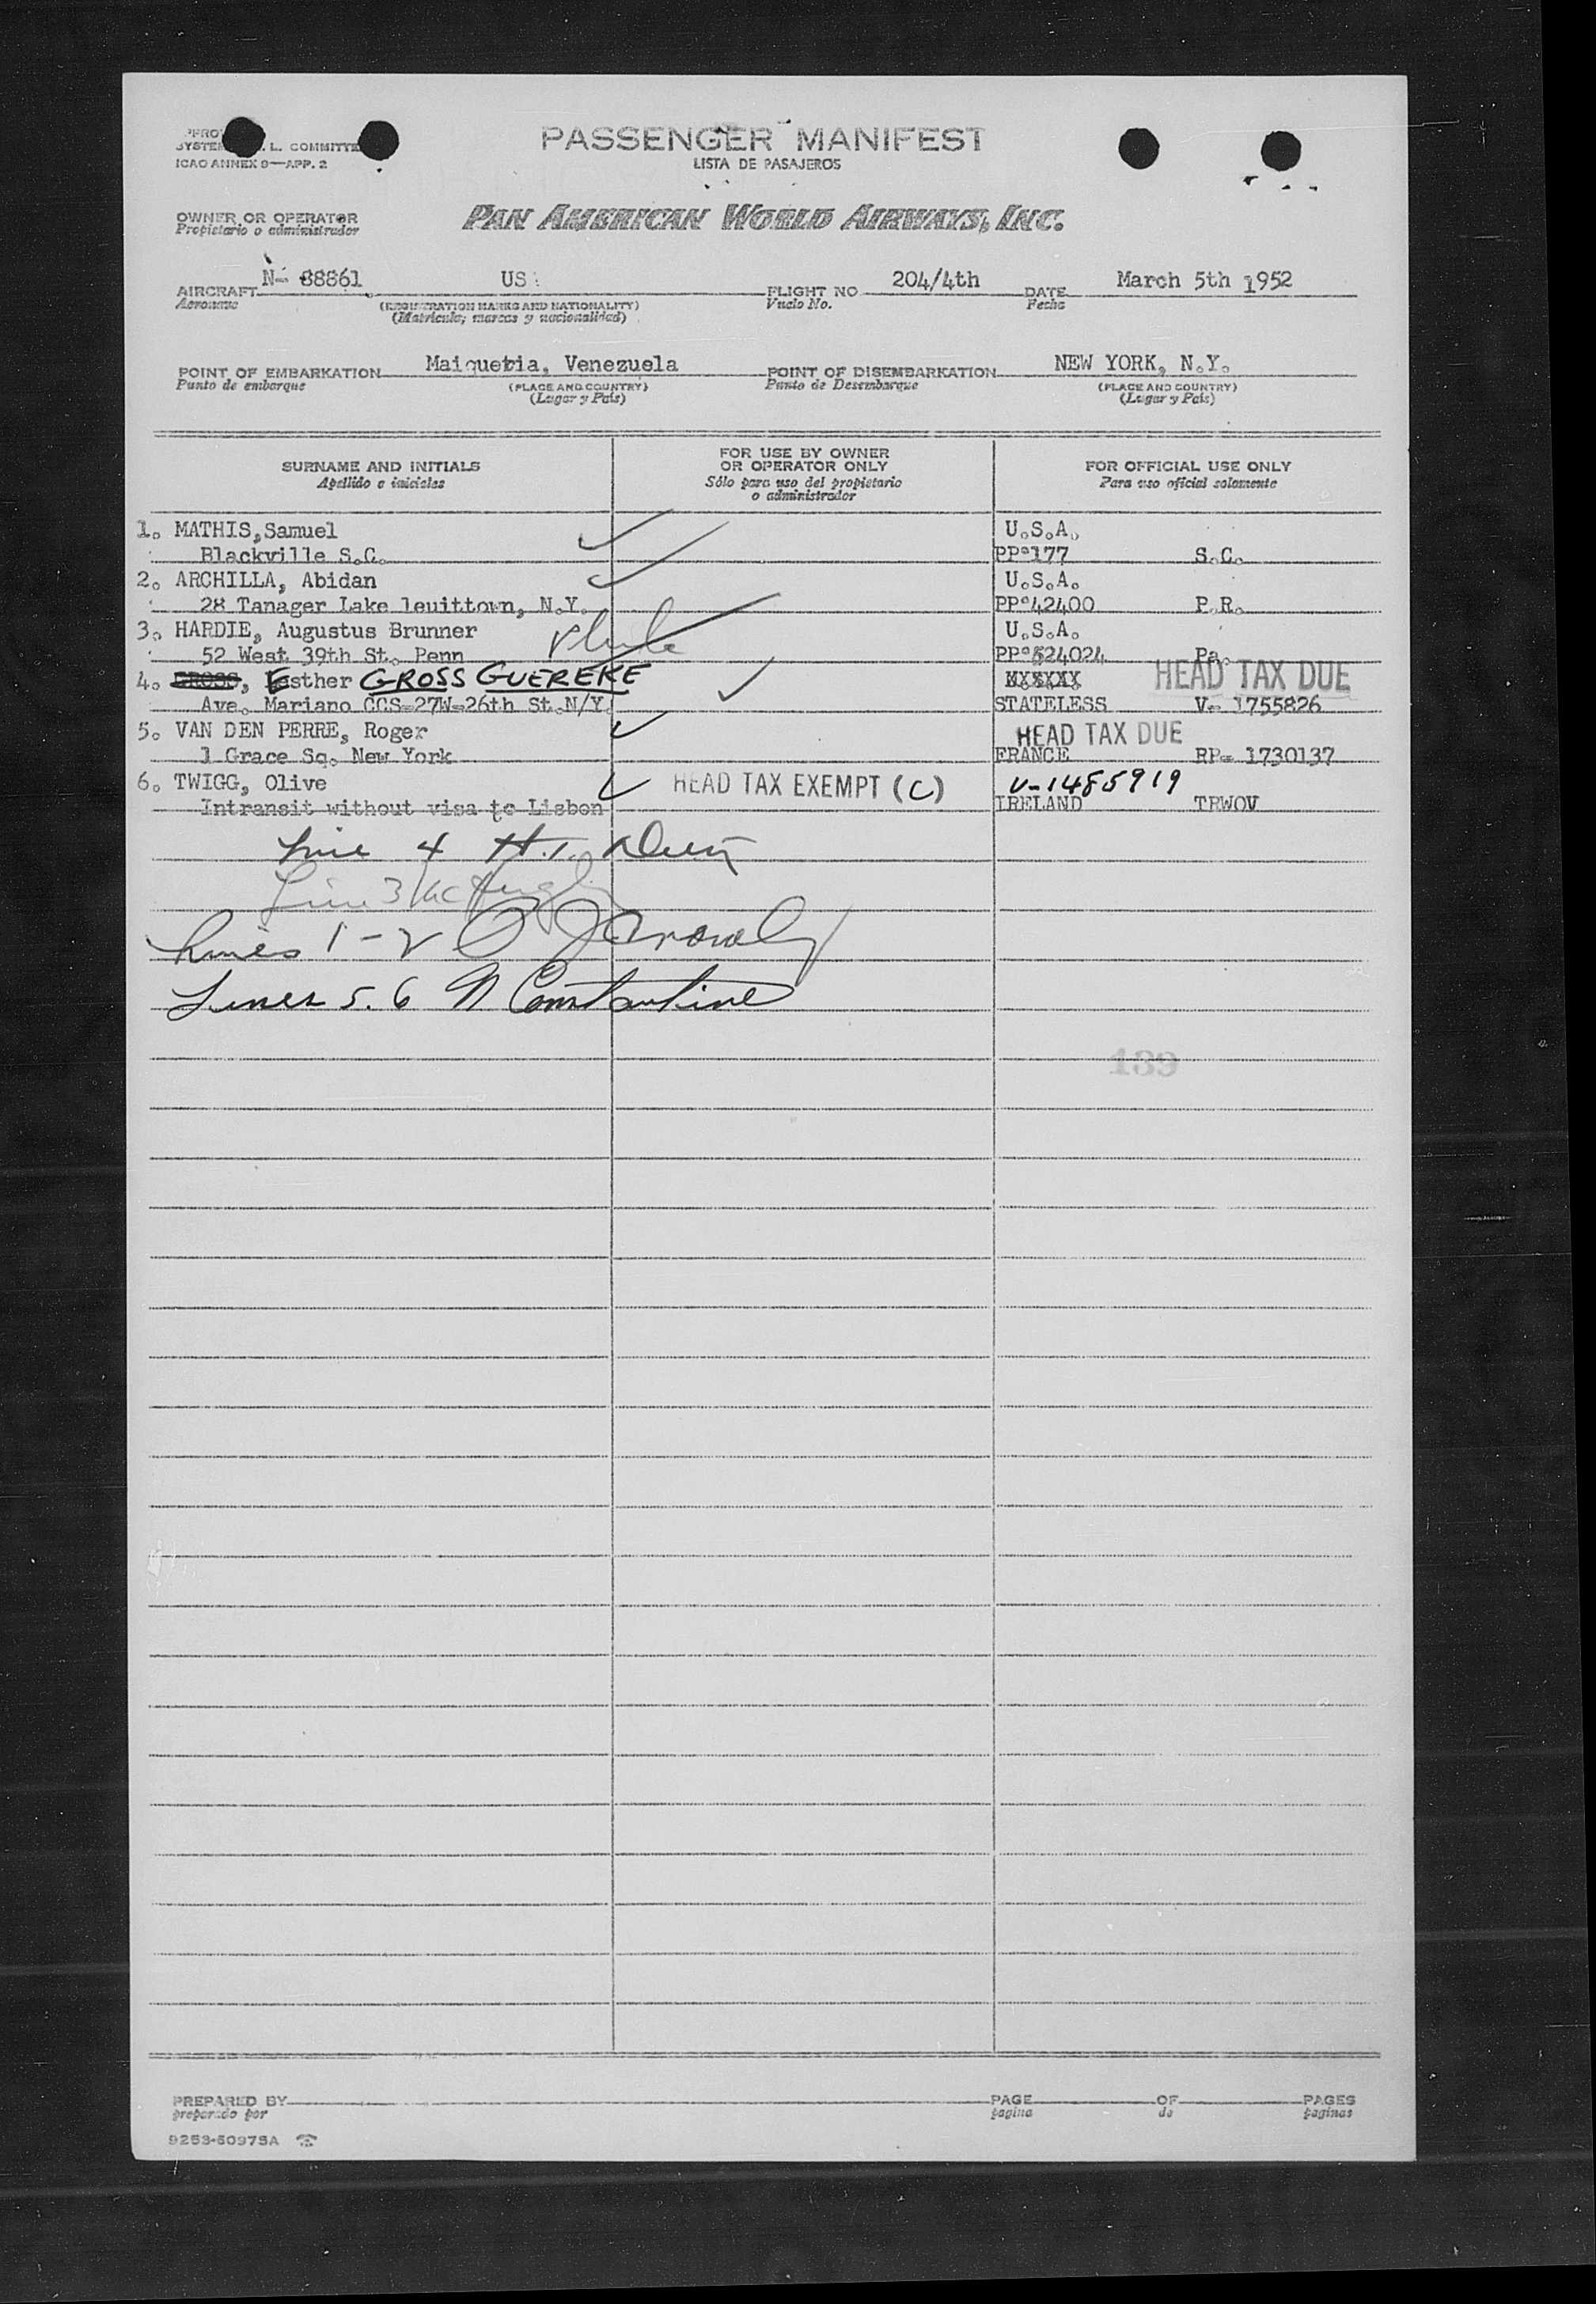 SYSTEM
L. COMMITTE
ICAO ANNEX 9—APP. 2
PASSENGER MANIFEST
LISTA DE PASAJEROS
OWNER OR OPERATOR
Propietario o administrador
PAN AMERICAN WORLD AIRWAYS, INC.
AIRCRAFT N- 88861 US FLIGHT NO 204/4th DATE March 5th 1952
Aeronave (REGISTRATION MARKS AND NATIONALITY) Vuelo No. Fecha
(Matricula; marcas y nacionalidad)
POINT OF EMBARKATION Maiquetia, Venezuela POINT OF DISEMBARKATION NEW YORK, N.Y.
Punto de embarque (PLACE AND COUNTRY) Punto de Desembarque (PLACE AND COUNTRY)
(Lugar y País) (Lugar y País)
SURNAME AND INITIALS
Apellido e iniciales
FOR USE BY OWNER
OR OPERATOR ONLY
Sólo para uso del propietario
o administrador
FOR OFFICIAL USE ONLY
Para uso oficial solamente
1. MATHIS,Samuel U.S.A.
Blackville S.C. PP°177 S.C.
2. ARCHILLA, Abidan U.S.A.
28 Tanager Lake leuittown, N.Y. PP°42400 P.R.
3. HARDIE, Augustus Brunner U.S.A.
52 West 39th St. Penn PP°524024 Pa.
4. GROSS, Esther GROSS GUEREKE HEAD TAX DUE
Ave. Mariano CCS-27W-26th St.N/Y. STATELESS V- 1755826
5. VAN DEN PERRE, Roger HEAD TAX DUE
1 Grace Sq. New York FRANCE RP- 1730137
6. TWIGG, Olive HEAD TAX EXEMPT (C) V-1485919
Intransit without visa to Lisbon IRELAND TRWOV
Line 4 H.T.
Line 3
Lines 1-2
Lines 5.6 N Constantine
139
PREPARED BY PAGE OF PAGES
preparado por pagina de paginas
9253-50975A